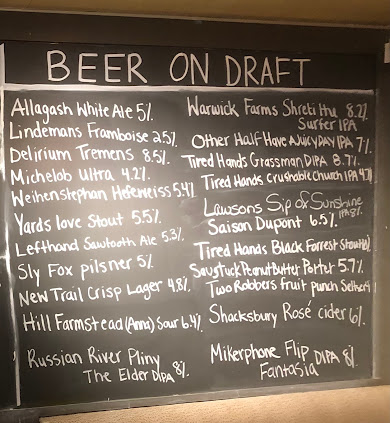 BEER ON DRAFT
Allagash White Ale 5%
Lindemans Framboise 2.5%
Delirium Tremens 8.5%
Michelob Ultra 4.2%
Weihenstephan Hefeweiss 5.4%
Yards love Stout 5.5%
Lefthand Sawtooth Ale 5.3%
Sly Fox pilsner 5%
New Trail Crisp Lager 4.8%
Hill Farmstead (Anna) Sour 6.4%
Russian River Pliny
The Elder DIPA 8%
Warwick Farms 8.2%
Surfer IPA
Other Half Have A JUICY DAY IPA 7%
Tired Hands Grassman DIPA 8.7%
Tired Hands Crushable Church IPA
Lawsons Sip of Sunshine
IPA 8%
Saison Dupont 6.5%
Tired Hands Black Forrest Stout
Peanut Butter Porter 5.7%
Two Robbers fruit punch Seltzer
Shacksbury Rosé cider 6%
Mikerphone Flip DIPA 8%
Fantasia